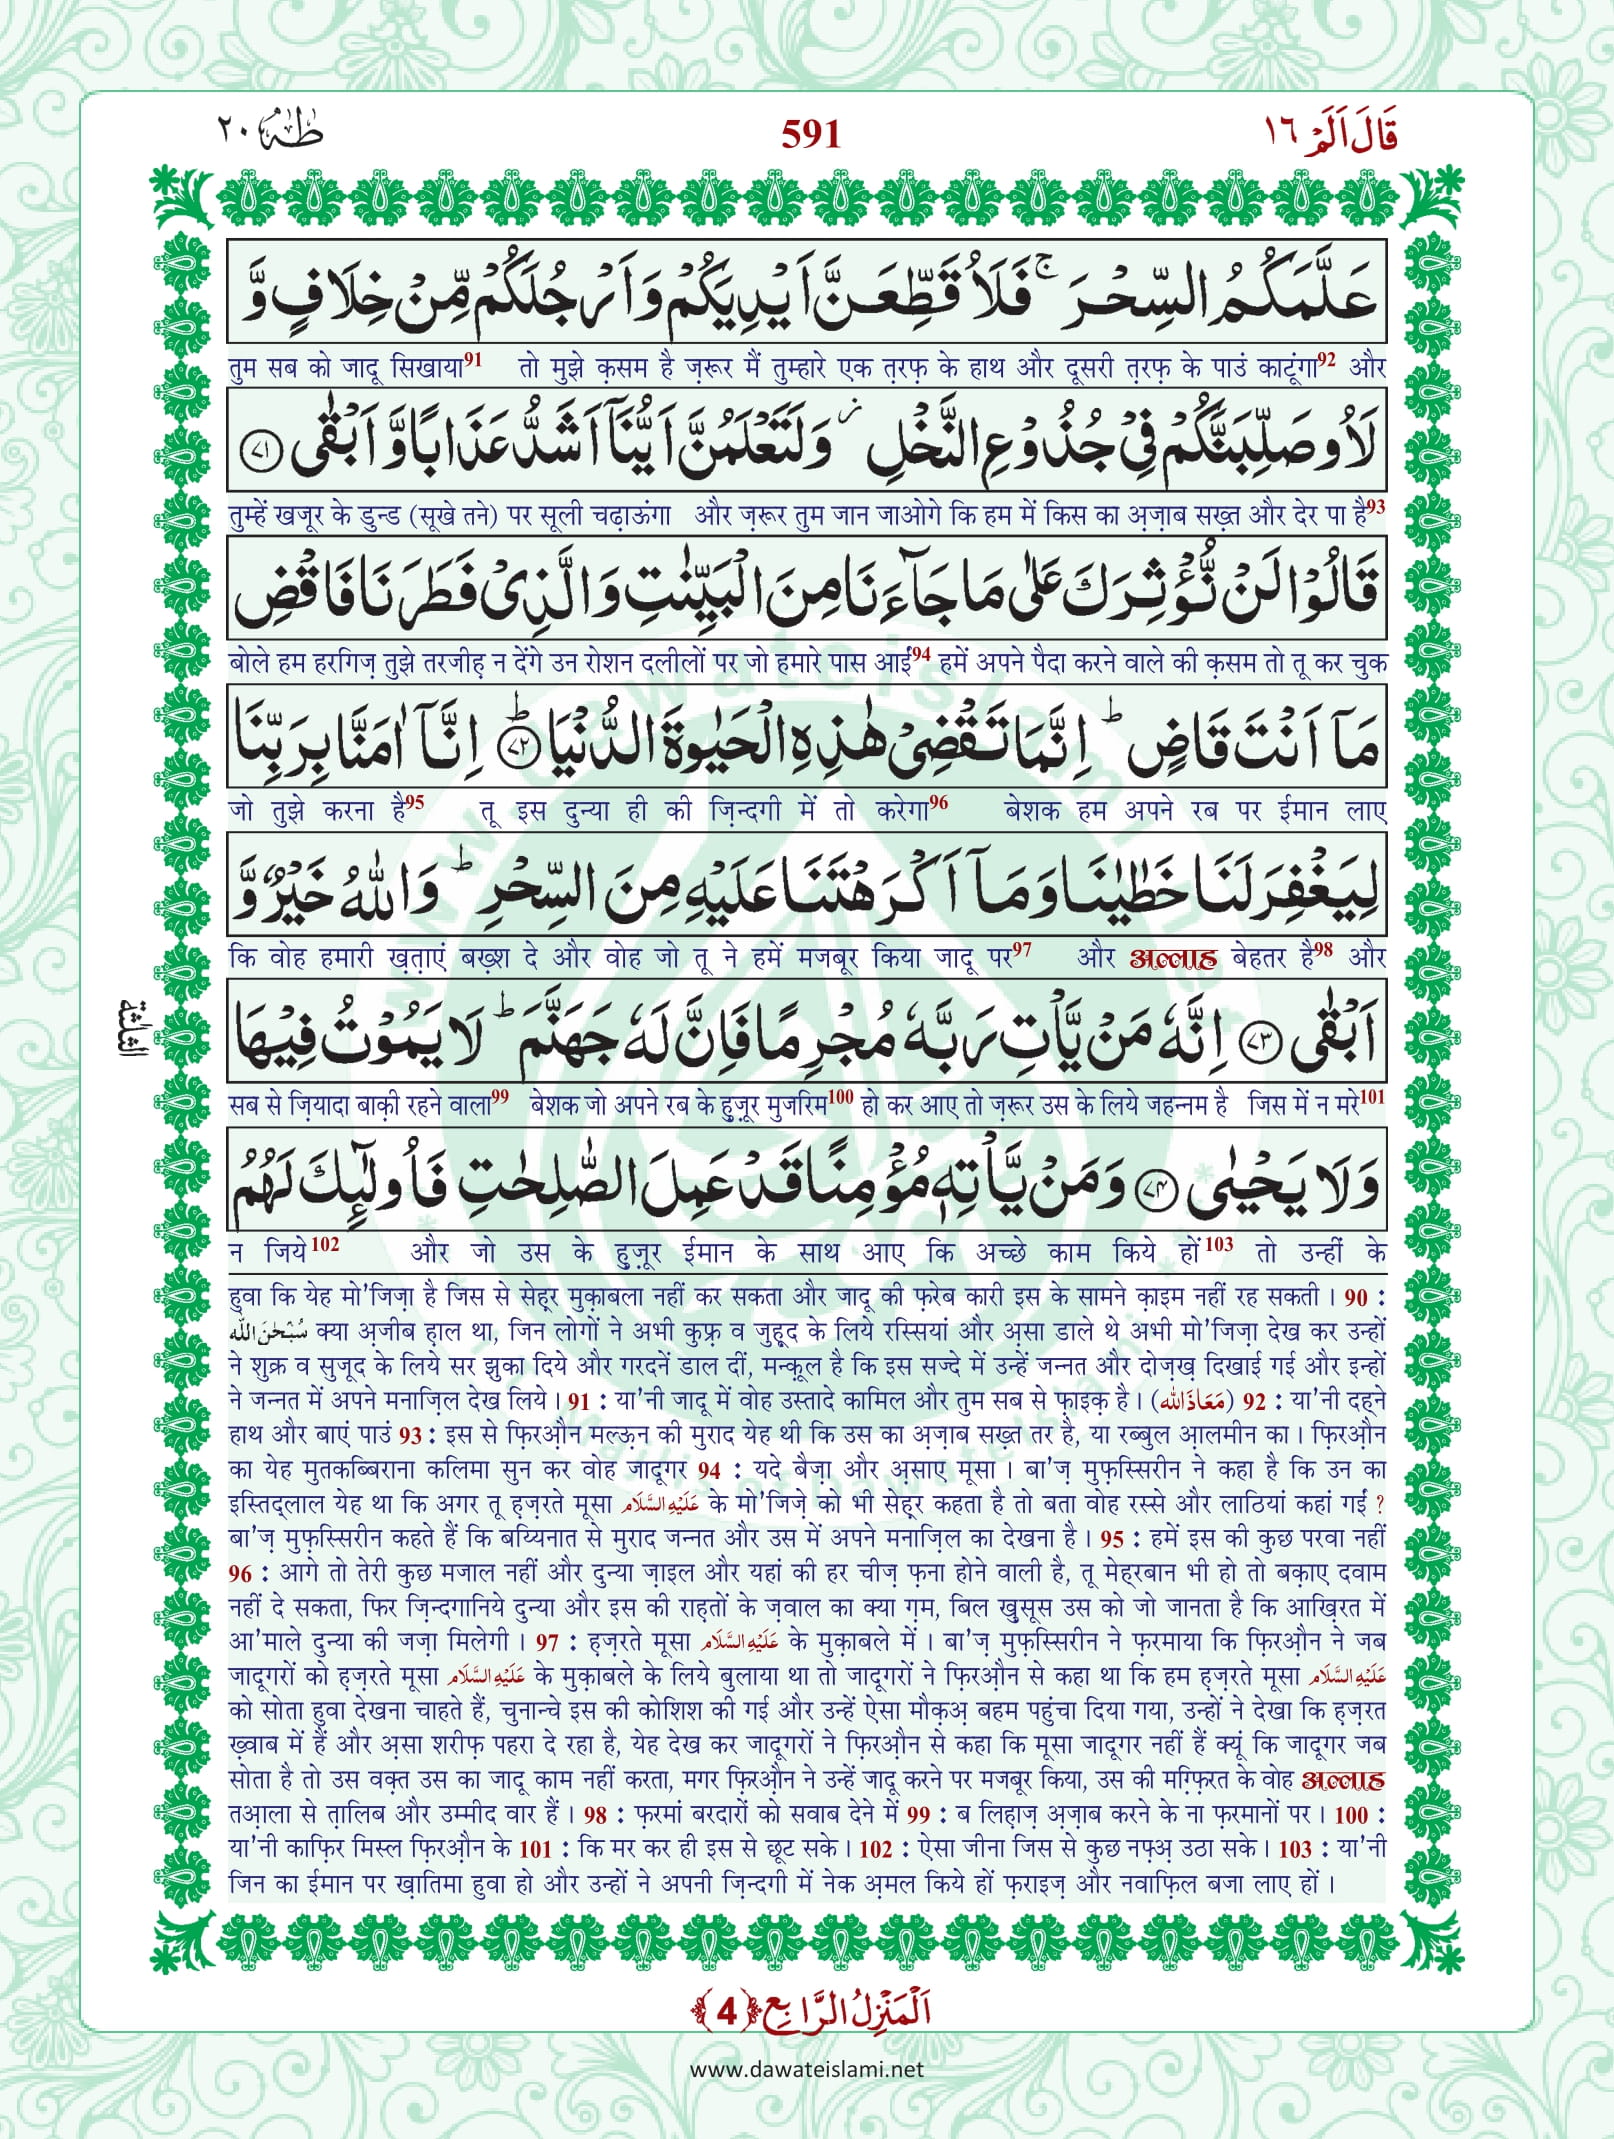 قَالَ اَلَمْ ١٦
591
طٰهٰ ٢٠
عَلَّمَكُمُ السِّحْرَ ۚ فَلَاُقَطِّعَنَّ اَيْدِيَكُمْ وَاَرْجُلَكُمْ مِّنْ خِلَافٍ وَّ
तुम सब को जादू सिखाया91 तो मुझे क़सम है ज़रूर मैं तुम्हारे एक त़रफ़ के हाथ और दूसरी त़रफ़ के पाउं काटूंगा92 और
لَاُوصَلِّبَنَّكُمْ فِيْ جُذُوْعِ النَّخْلِ ؗ وَلَتَعْلَمُنَّ اَيُّنَاۤ اَشَدُّ عَذَابًا وَّ اَبْقٰى ﴿٧١﴾
तुम्हें खजूर के डुन्ड (सूखे तने) पर सूली चढ़ाऊंगा और ज़रूर तुम जान जाओगे कि हम में किस का अ़ज़ाब सख़्त और देर पा है93
قَالُوْا لَنْ نُّؤْثِرَكَ عَلٰى مَا جَآءَنَا مِنَ الْبَيِّنٰتِ وَالَّذِيْ فَطَرَنَا فَاقْضِ
बोले हम हरगिज़ तुझे तरजीह़ न देंगे उन रोशन दलीलों पर जो हमारे पास आईं94 हमें अपने पैदा करने वाले की क़सम तो तू कर चुक
مَاۤ اَنْتَ قَاضٍ ؕ اِنَّمَا تَقْضِيْ هٰذِهِ الْحَيٰوةَ الدُّنْيَا ؕ﴿٧٢﴾ اِنَّاۤ اٰمَنَّا بِرَبِّنَا
जो तुझे करना है95 तू इस दुन्या ही की ज़िन्दगी में तो करेगा96 बेशक हम अपने रब पर ईमान लाए
لِيَغْفِرَ لَنَا خَطٰيٰنَا وَمَاۤ اَكْرَهْتَنَا عَلَيْهِ مِنَ السِّحْرِ ؕ وَاللّٰهُ خَيْرٌ وَّ
कि वोह हमारी ख़त़ाएं बख़्श दे और वोह जो तू ने हमें मजबूर किया जादू पर97 और अल्लाह बेहतर है98 और
اَبْقٰى ﴿٧٣﴾ اِنَّهٗ مَنْ يَّاْتِ رَبَّهٗ مُجْرِمًا فَاِنَّ لَهٗ جَهَنَّمَ ؕ لَا يَمُوْتُ فِيْهَا
الثلثة
सब से ज़ियादा बाक़ी रहने वाला99 बेशक जो अपने रब के हुज़ूर मुजरिम100 हो कर आए तो ज़रूर उस के लिये जहन्नम है जिस में न मरे101
وَلَا يَحْيٰى ﴿٧٤﴾ وَمَنْ يَّاْتِهٖ مُؤْمِنًا قَدْ عَمِلَ الصّٰلِحٰتِ فَاُولٰٓئِكَ لَهُمُ
न जिये102 और जो उस के हुज़ूर ईमान के साथ आए कि अच्छे काम किये हों103 तो उन्हीं के
हुवा कि येह मो'जिज़ा है जिस से सेह़्र मुक़ाबला नहीं कर सकता और जादू की फ़रेब कारी इस के सामने क़ाइम नहीं रह सकती । 90 :
سُبْحٰنَ اللّٰه क्या अ़जीब ह़ाल था, जिन लोगों ने अभी कुफ़्र व जुह़ूद के लिये रस्सियां और अ़सा डाले थे अभी मो'जिज़ा देख कर उन्हों
ने शुक्र व सुजूद के लिये सर झुका दिये और गरदनें डाल दीं, मन्क़ूल है कि इस सज्दे में उन्हें जन्नत और दोज़ख़ दिखाई गई और इन्हों
ने जन्नत में अपने मनाज़िल देख लिये । 91 : या'नी जादू में वोह उस्तादे कामिल और तुम सब से फ़ाइक़ है । (مَعَاذَ اللّٰه) 92 : या'नी दह्ने
हाथ और बाएं पाउं 93 : इस से फ़िरऔ़न मल्ऊ़न की मुराद येह थी कि उस का अ़ज़ाब सख़्त तर है, या रब्बुल आ़लमीन का । फ़िरऔ़न
का येह मुतकब्बिराना कलिमा सुन कर वोह जादूगर 94 : यदे बैज़ा और अ़साए मूसा । बा'ज़ मुफ़स्सिरीन ने कहा है कि उन का
इस्तिद्लाल येह था कि अगर तू ह़ज़रते मूसा عَلَيْهِ السَّلَام के मो'जिज़े को भी सेह़्र कहता है तो बता वोह रस्से और लाठियां कहां गईं ?
बा'ज़ मुफ़स्सिरीन कहते हैं कि बय्यिनात से मुराद जन्नत और उस में अपने मनाज़िल का देखना है । 95 : हमें इस की कुछ परवा नहीं
96 : आगे तो तेरी कुछ मजाल नहीं और दुन्या ज़ाइल और यहां की हर चीज़ फ़ना होने वाली है, तू मेह्रबान भी हो तो बक़ाए दवाम
नहीं दे सकता, फिर ज़िन्दगानिये दुन्या और इस की राह़तों के ज़वाल का क्या ग़म, बिल ख़ुसूस उस को जो जानता है कि आख़िरत में
आ'माले दुन्या की जज़ा मिलेगी । 97 : ह़ज़रते मूसा عَلَيْهِ السَّلَام के मुक़ाबले में । बा'ज़ मुफ़स्सिरीन ने फ़रमाया कि फ़िरऔ़न ने जब
जादूगरों को ह़ज़रते मूसा عَلَيْهِ السَّلَام के मुक़ाबले के लिये बुलाया था तो जादूगरों ने फ़िरऔ़न से कहा था कि हम ह़ज़रते मूसा عَلَيْهِ السَّلَام
को सोता हुवा देखना चाहते हैं, चुनान्चे इस की कोशिश की गई और उन्हें ऐसा मौक़अ़ बहम पहुंचा दिया गया, उन्हों ने देखा कि ह़ज़रत
ख़्वाब में हैं और अ़सा शरीफ़ पहरा दे रहा है, येह देख कर जादूगरों ने फ़िरऔ़न से कहा कि मूसा जादूगर नहीं हैं क्यूं कि जादूगर जब
सोता है तो उस वक़्त उस का जादू काम नहीं करता, मगर फ़िरऔ़न ने उन्हें जादू करने पर मजबूर किया, उस की मग़्फ़िरत के वोह अल्लाह
तआ़ला से त़ालिब और उम्मीद वार हैं । 98 : फ़रमां बरदारों को सवाब देने में 99 : ब लिह़ाज़ अ़ज़ाब करने के ना फ़रमानों पर । 100 :
या'नी काफ़िर मिस्ल फ़िरऔ़न के 101 : कि मर कर ही इस से छूट सके । 102 : ऐसा जीना जिस से कुछ नफ़्अ़ उठा सके । 103 : या'नी
जिन का ईमान पर ख़ातिमा हुवा हो और उन्हों ने अपनी ज़िन्दगी में नेक अ़मल किये हों फ़राइज़ और नवाफ़िल बजा लाए हों ।
اَلْمَنْزِلُ الرَّابِع ﴿4﴾
www.dawateislami.net